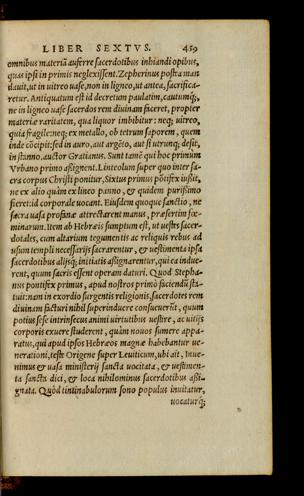 LIBER SEXTVS. 459
omnibus materiā auferre sacerdotibus inhiandi opibus,
quas ipsi in primis neglexissent. Zepherinus postra man
dauit, ut in uitreo uase, non in ligneo, ut antea, sacrifica-
retur. Antiquatum est id decretum paulatim, cautumq́;
ne in ligneo uase sacerdos rem diuinam faceret, propter
materiæ raritatem, qua liquor imbibitur: neq; uitreo,
quia fragile: neq; ex metallo, ob tetrum saporem, quem
inde cōcipit: sed in auro, aut argēto, aut si utrunq; desit,
in stanno. auctor Gratianus. Sunt tamē qui hoc primùm
Vrbano primo aßignent. Linteolum super quo inter sa
cra corpus Christi ponitur, Sixtus primus pōtifex iußit,
ne ex alio quàm ex lineo panno, & quidem purißimo
fieret: id corporale uocant. Eiusdem quoque sanctio, ne
sacra uasa profanæ attrectarent manus, præsertim fœ-
minarum. Item ab Hebræis sumptum est, ut uestes sacer-
dotales, cum altarium tegumentis ac reliquis rebus ad
usum templi necessarijs sacrarentur, & uestimenta ipsa
sacerdotibus alijsq́; initiatis aßignarentur, qui ea indue-
rent, quum sacris essent operam daturi. Quod Stepha-
nus pontifex primus, apud nostros primò faciendū sta-
tuit: nam in exordio surgentis religionis, sacerdotes rem
diuinam facturi nihil superinduere consueuerūt, quum
potius sese intrinsecus animi uirtutibus uestire, ac uitijs
corporis exuere studerent, quàm nouos sumere appa-
ratus, qui apud ipsos Hebræos magnæ habebantur ue-
nerationi, teste Origene super Leuiticum, ubi ait, Inue-
nimus & uasa ministerij sancta uocitata, & uestimen-
ta sancta dici, & loca nihilominus sacerdotibus aßi-
gnata. Quòd tintinabulorum sono populus inuitatur,
uocaturq́;